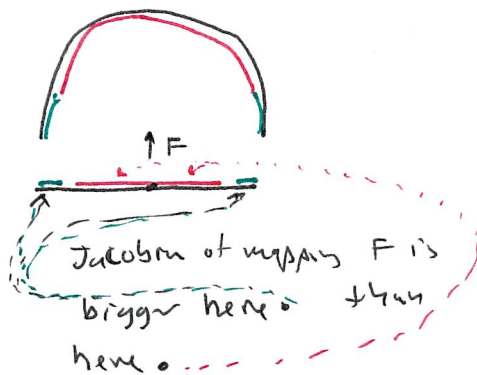 F
Jacobian of mapping F is
bigger here. than
here.